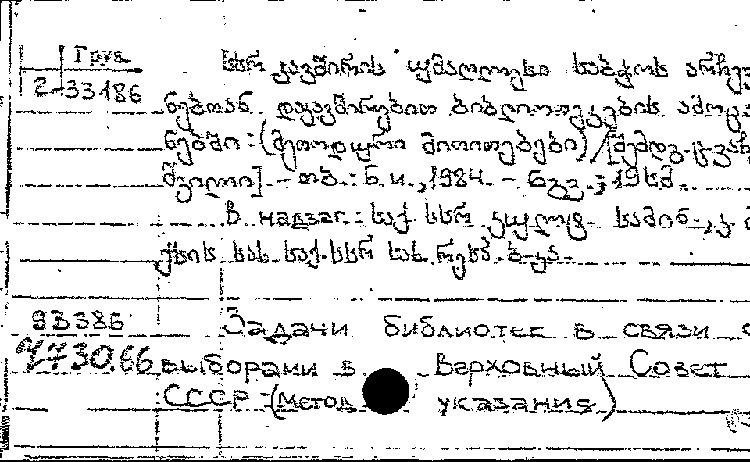 Груз.
2-33186
სსრ კავშირის უმაღლესი საბჭოს არჩევ
ნებთან დაკავშირებით ბიბლიოთეკების ამოცა
ნებში : (მეთოდური მითითებები) / [შემდგ. ც. ვახ
შვილი]. - თბ. : Б. и., 1984. - 6გვ. ; 19სმ.
В надзаг. : საქ. სსრ კულტ. სამინ.,
ქსის სახ. საქ. სსრ სახ. რესპ. ბ-კა.
93386
Задачи библиотек в связи с
4730.66 выборами в Верховный Совет
СССР : (метод. указания)